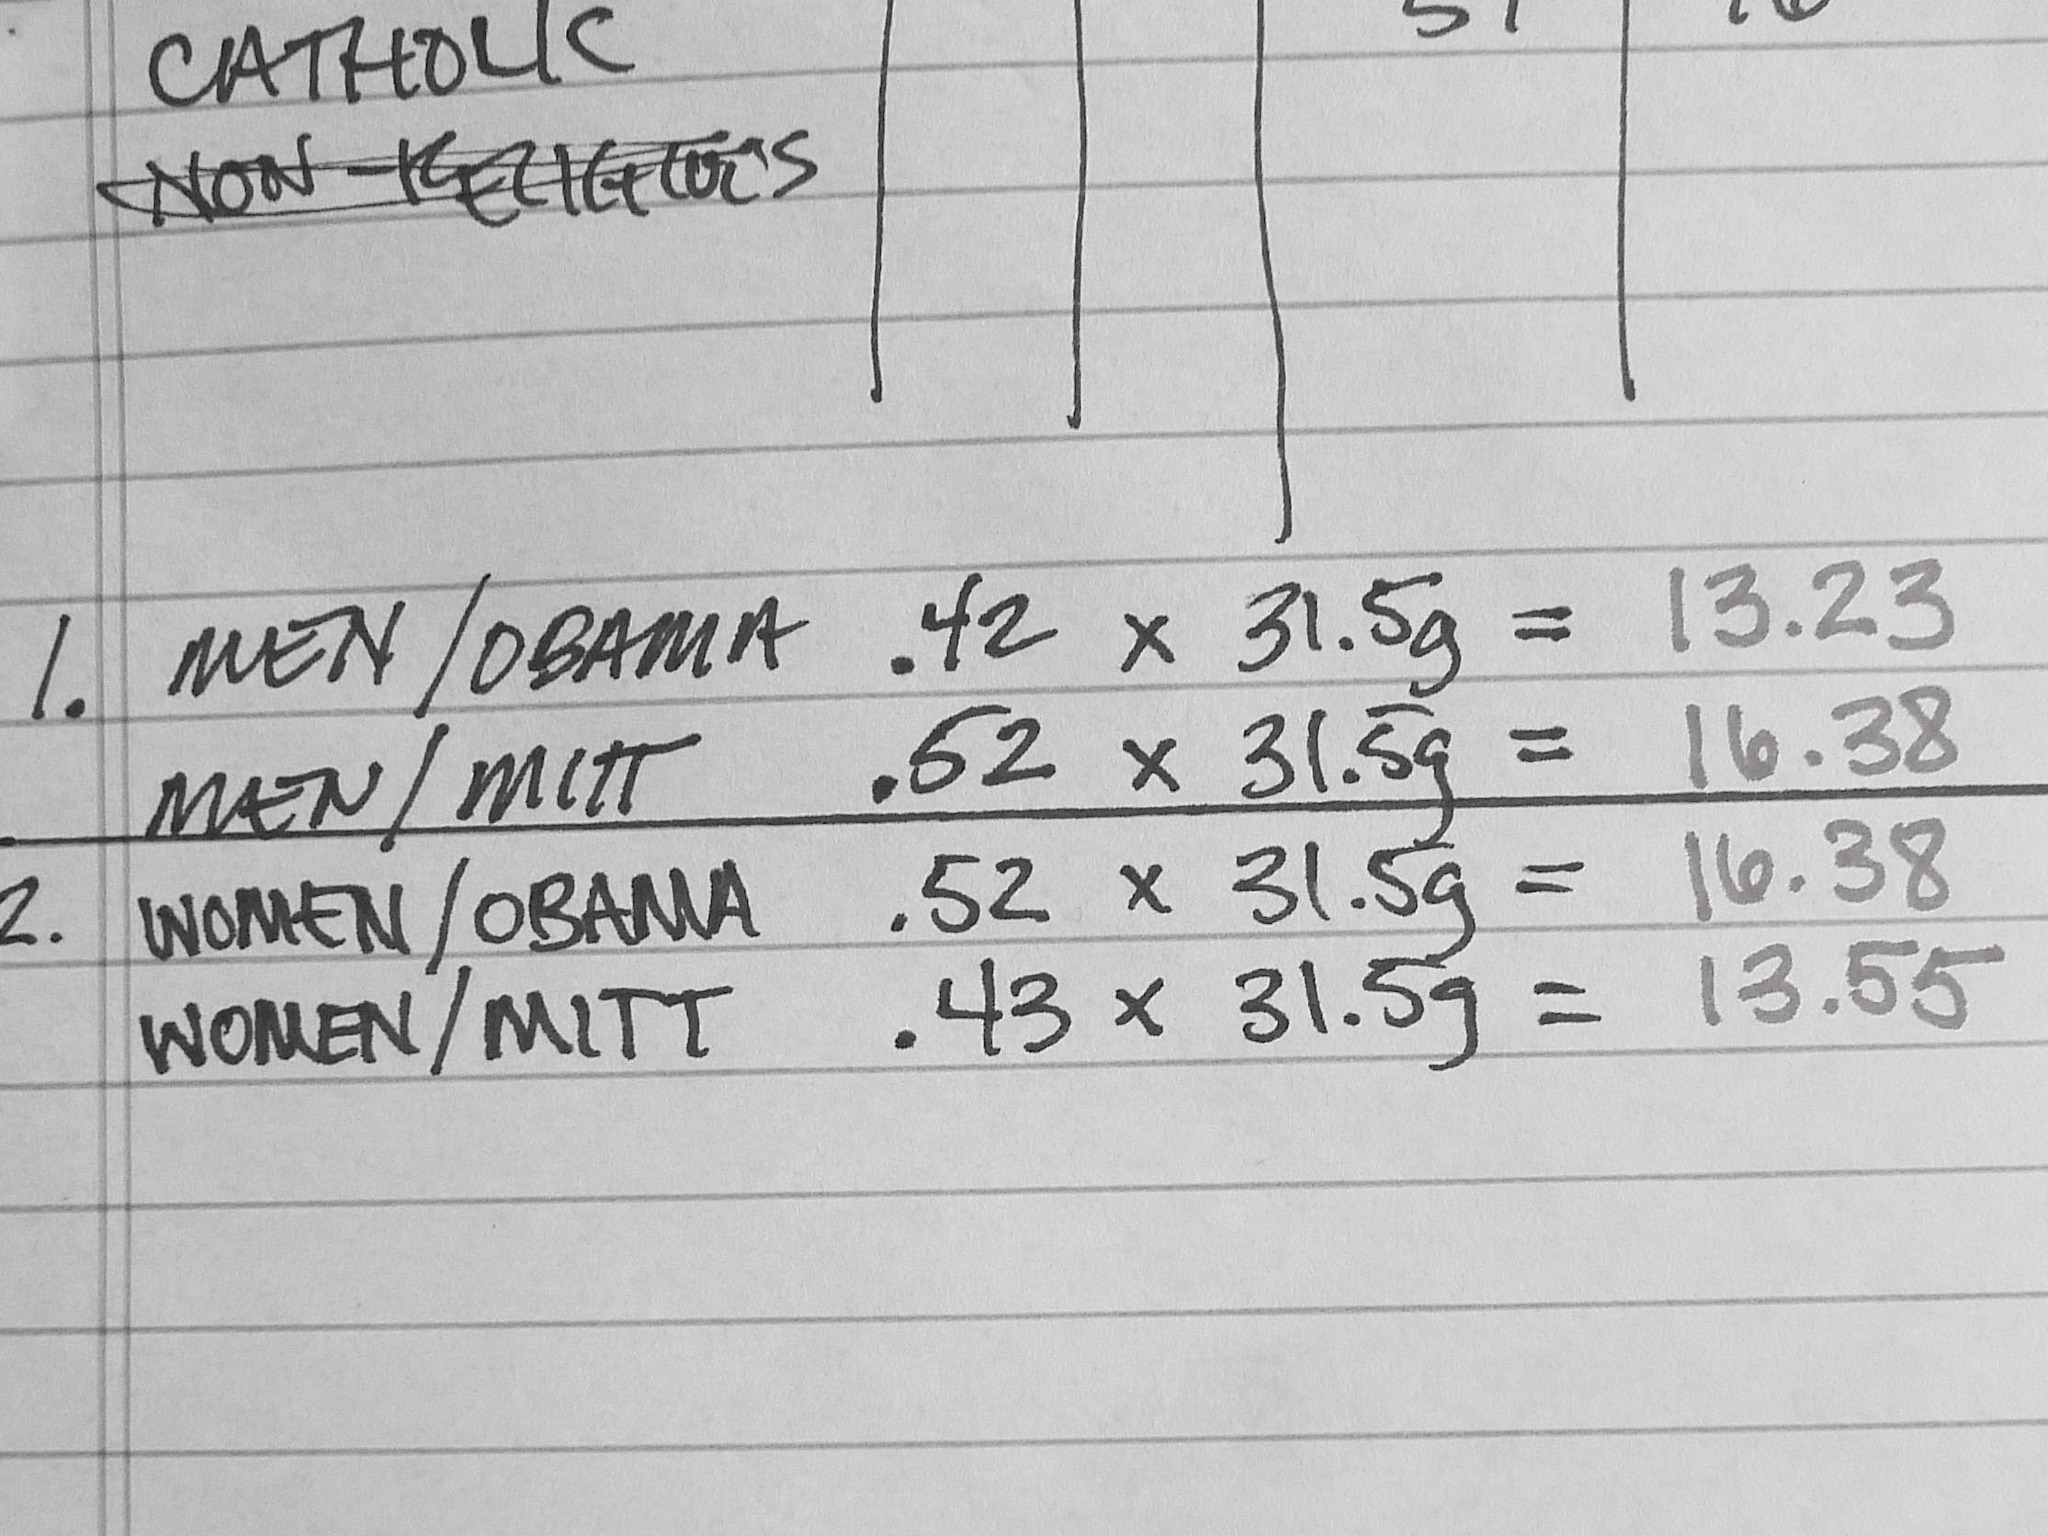 CATHOLIC 51
NON-RELIGIOUS
1. MEN/OBAMA .42 x 31.5g = 13.23
MEN/MITT .52 x 31.5g = 16.38
2. WOMEN/OBAMA .52 x 31.5g = 16.38
WOMEN/MITT .43 x 31.5g = 13.55